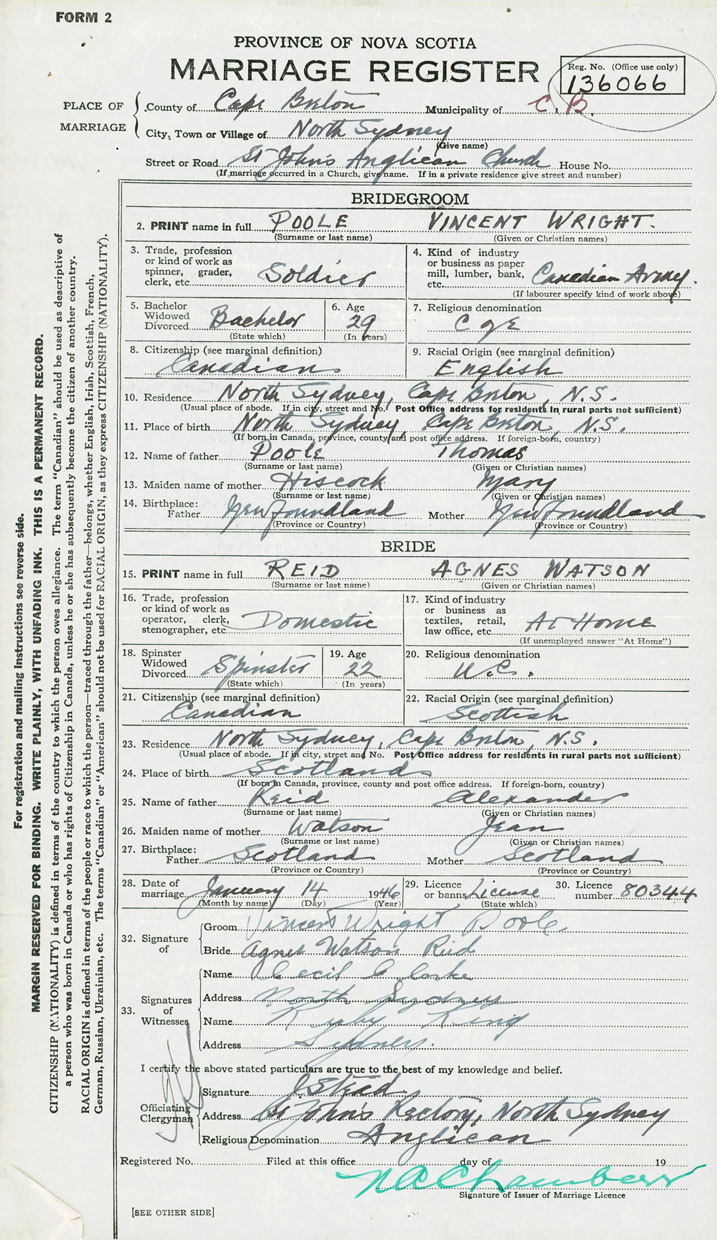 FORM 2
PROVINCE OF NOVA SCOTIA
MARRIAGE REGISTER
Reg. No. (Office use only)
136066
PLACE OF MARRIAGE
County of Cape Breton Municipality of C.B.
City, Town or Village of North Sydney
(Give name)
Street or Road St John's Anglican Church House No.
(If marriage occurred in a Church, give name. If in a private residence give street and number)
BRIDEGROOM
2. PRINT name in full POOLE VINCENT WRIGHT.
(Surname or last name) (Given or Christian names)
3. Trade, profession or kind of work as spinner, grader, clerk, etc. Soldier
4. Kind of industry or business as paper mill, lumber, bank, etc. Canadian Army.
(If labourer specify kind of work above)
5. Bachelor Widowed Divorced Bachelor (State which)
6. Age 29 (In years)
7. Religious denomination C of E
8. Citizenship (see marginal definition) Canadian
9. Racial Origin (see marginal definition) English
10. Residence North Sydney, Cape Breton, N.S.
(Usual place of abode. If in city, street and No. Post Office address for residents in rural parts not sufficient)
11. Place of birth North Sydney, Cape Breton, N.S.
(If born in Canada, province, county and post office address. If foreign-born, country)
12. Name of father Poole Thomas
(Surname or last name) (Given or Christian names)
13. Maiden name of mother Hiscock Mary
(Surname or last name) (Given or Christian names)
14. Birthplace: Father Newfoundland Mother Newfoundland
(Province or Country) (Province or Country)
BRIDE
15. PRINT name in full REID AGNES WATSON
(Surname or last name) (Given or Christian names)
16. Trade, profession or kind of work as operator, clerk, stenographer, etc. Domestic
17. Kind of industry or business as textiles, retail, law office, etc. At Home
(If unemployed answer "At Home")
18. Spinster Widowed Divorced Spinster (State which)
19. Age 22 (In years)
20. Religious denomination U.C.
21. Citizenship (see marginal definition) Canadian
22. Racial Origin (see marginal definition) Scottish
23. Residence North Sydney, Cape Breton, N.S.
(Usual place of abode. If in city, street and No. Post Office address for residents in rural parts not sufficient)
24. Place of birth Scotland
(If born in Canada, province, county and post office address. If foreign-born, country)
25. Name of father Reid Alexander
(Surname or last name) (Given or Christian names)
26. Maiden name of mother Watson Jean
(Surname or last name) (Given or Christian names)
27. Birthplace: Father Scotland Mother Scotland
(Province or Country) (Province or Country)
28. Date of marriage January 14 1946
(Month by name) (Day) (Year)
29. Licence or banns License (State which)
30. Licence number 80344
32. Signature of
Groom Vincent Wright Poole
Bride Agnes Watson Reid
33. Signatures of Witnesses
Name Cecil Clarke
Address North Sydney
Name King
Address Sydney.
I certify the above stated particulars are true to the best of my knowledge and belief.
Officiating Clergyman
Signature J Stead
Address St John's Rectory, North Sydney
Religious Denomination Anglican
Registered No. Filed at this office day of 19
N A Chambers
Signature of Issuer of Marriage Licence
[SEE OTHER SIDE]
For registration and mailing instructions see reverse side.
MARGIN RESERVED FOR BINDING. WRITE PLAINLY, WITH UNFADING INK. THIS IS A PERMANENT RECORD.
CITIZENSHIP (NATIONALITY) is defined in terms of the country to which the person owes allegiance. The term "Canadian" should be used as descriptive of
a person who was born in Canada or who has rights of Citizenship in Canada, unless he or she has subsequently become the citizen of another country.
RACIAL ORIGIN is defined in terms of the people or race to which the person—traced through the father—belongs, whether English, Irish, Scottish, French,
German, Russian, Ukrainian, etc. The terms "Canadian" or "American" should not be used for RACIAL ORIGIN, as they express CITIZENSHIP (NATIONALITY).